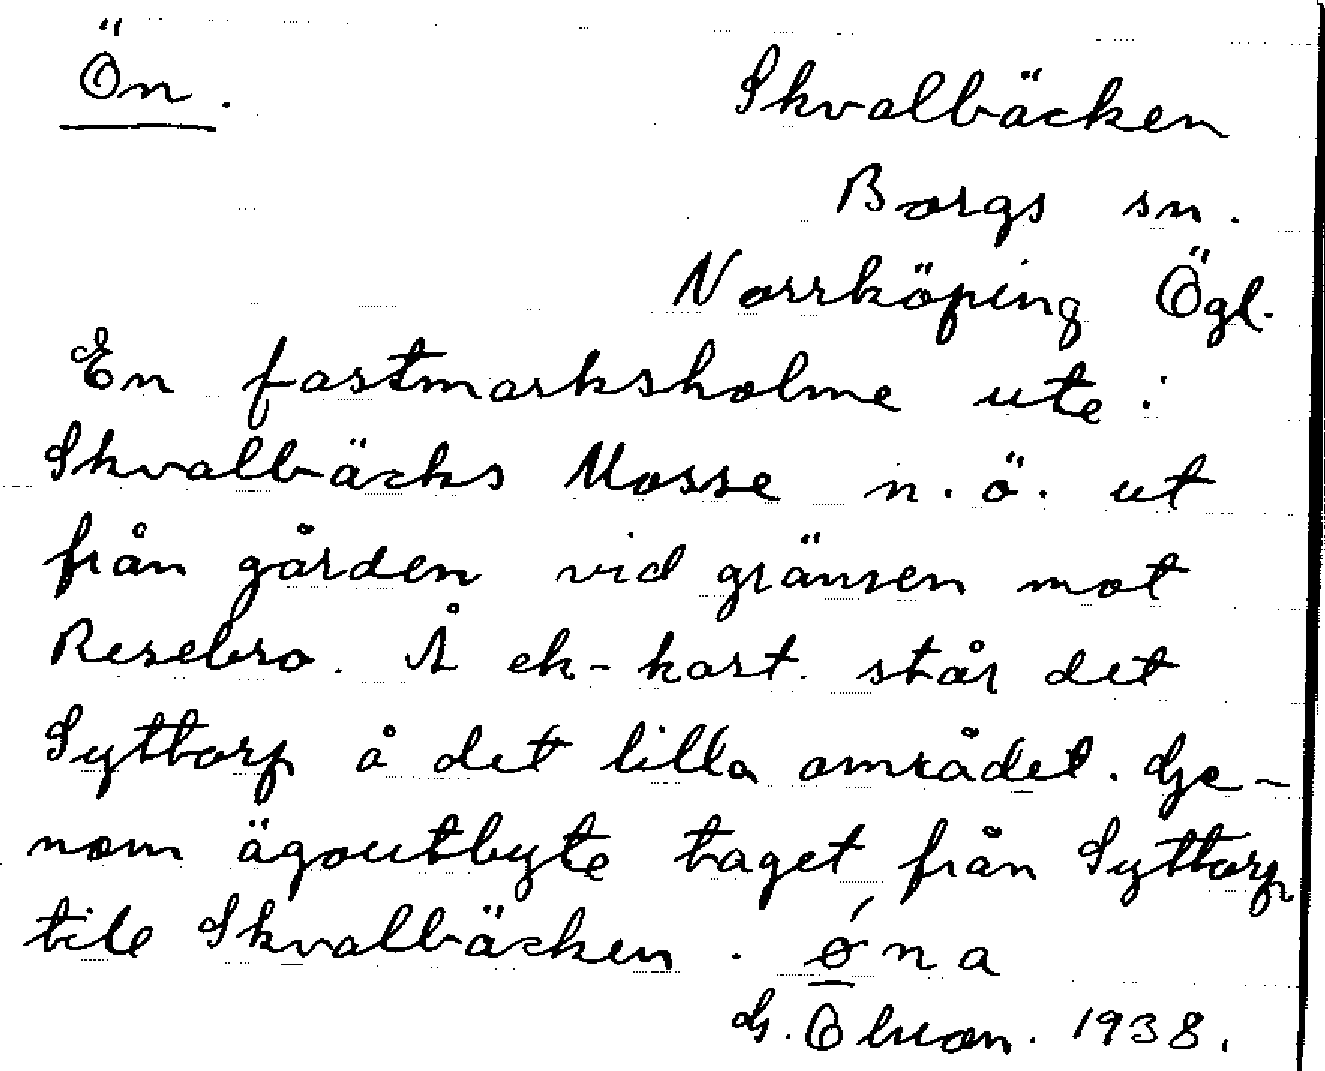 Ön.
Skvalbäcken
Borgs sn.
Norrköping Ögl.
En fastmarksholme ute i
Skvalbäcks Mosse n.ö. ut
från gården vid gränsen mot
Resebro. Å ek-kart. står det
Syttorp å det lilla området. Ge-
nom ägoutbyte taget från Syttorp
till Skvalbäcken. ǿna
G. 1938.